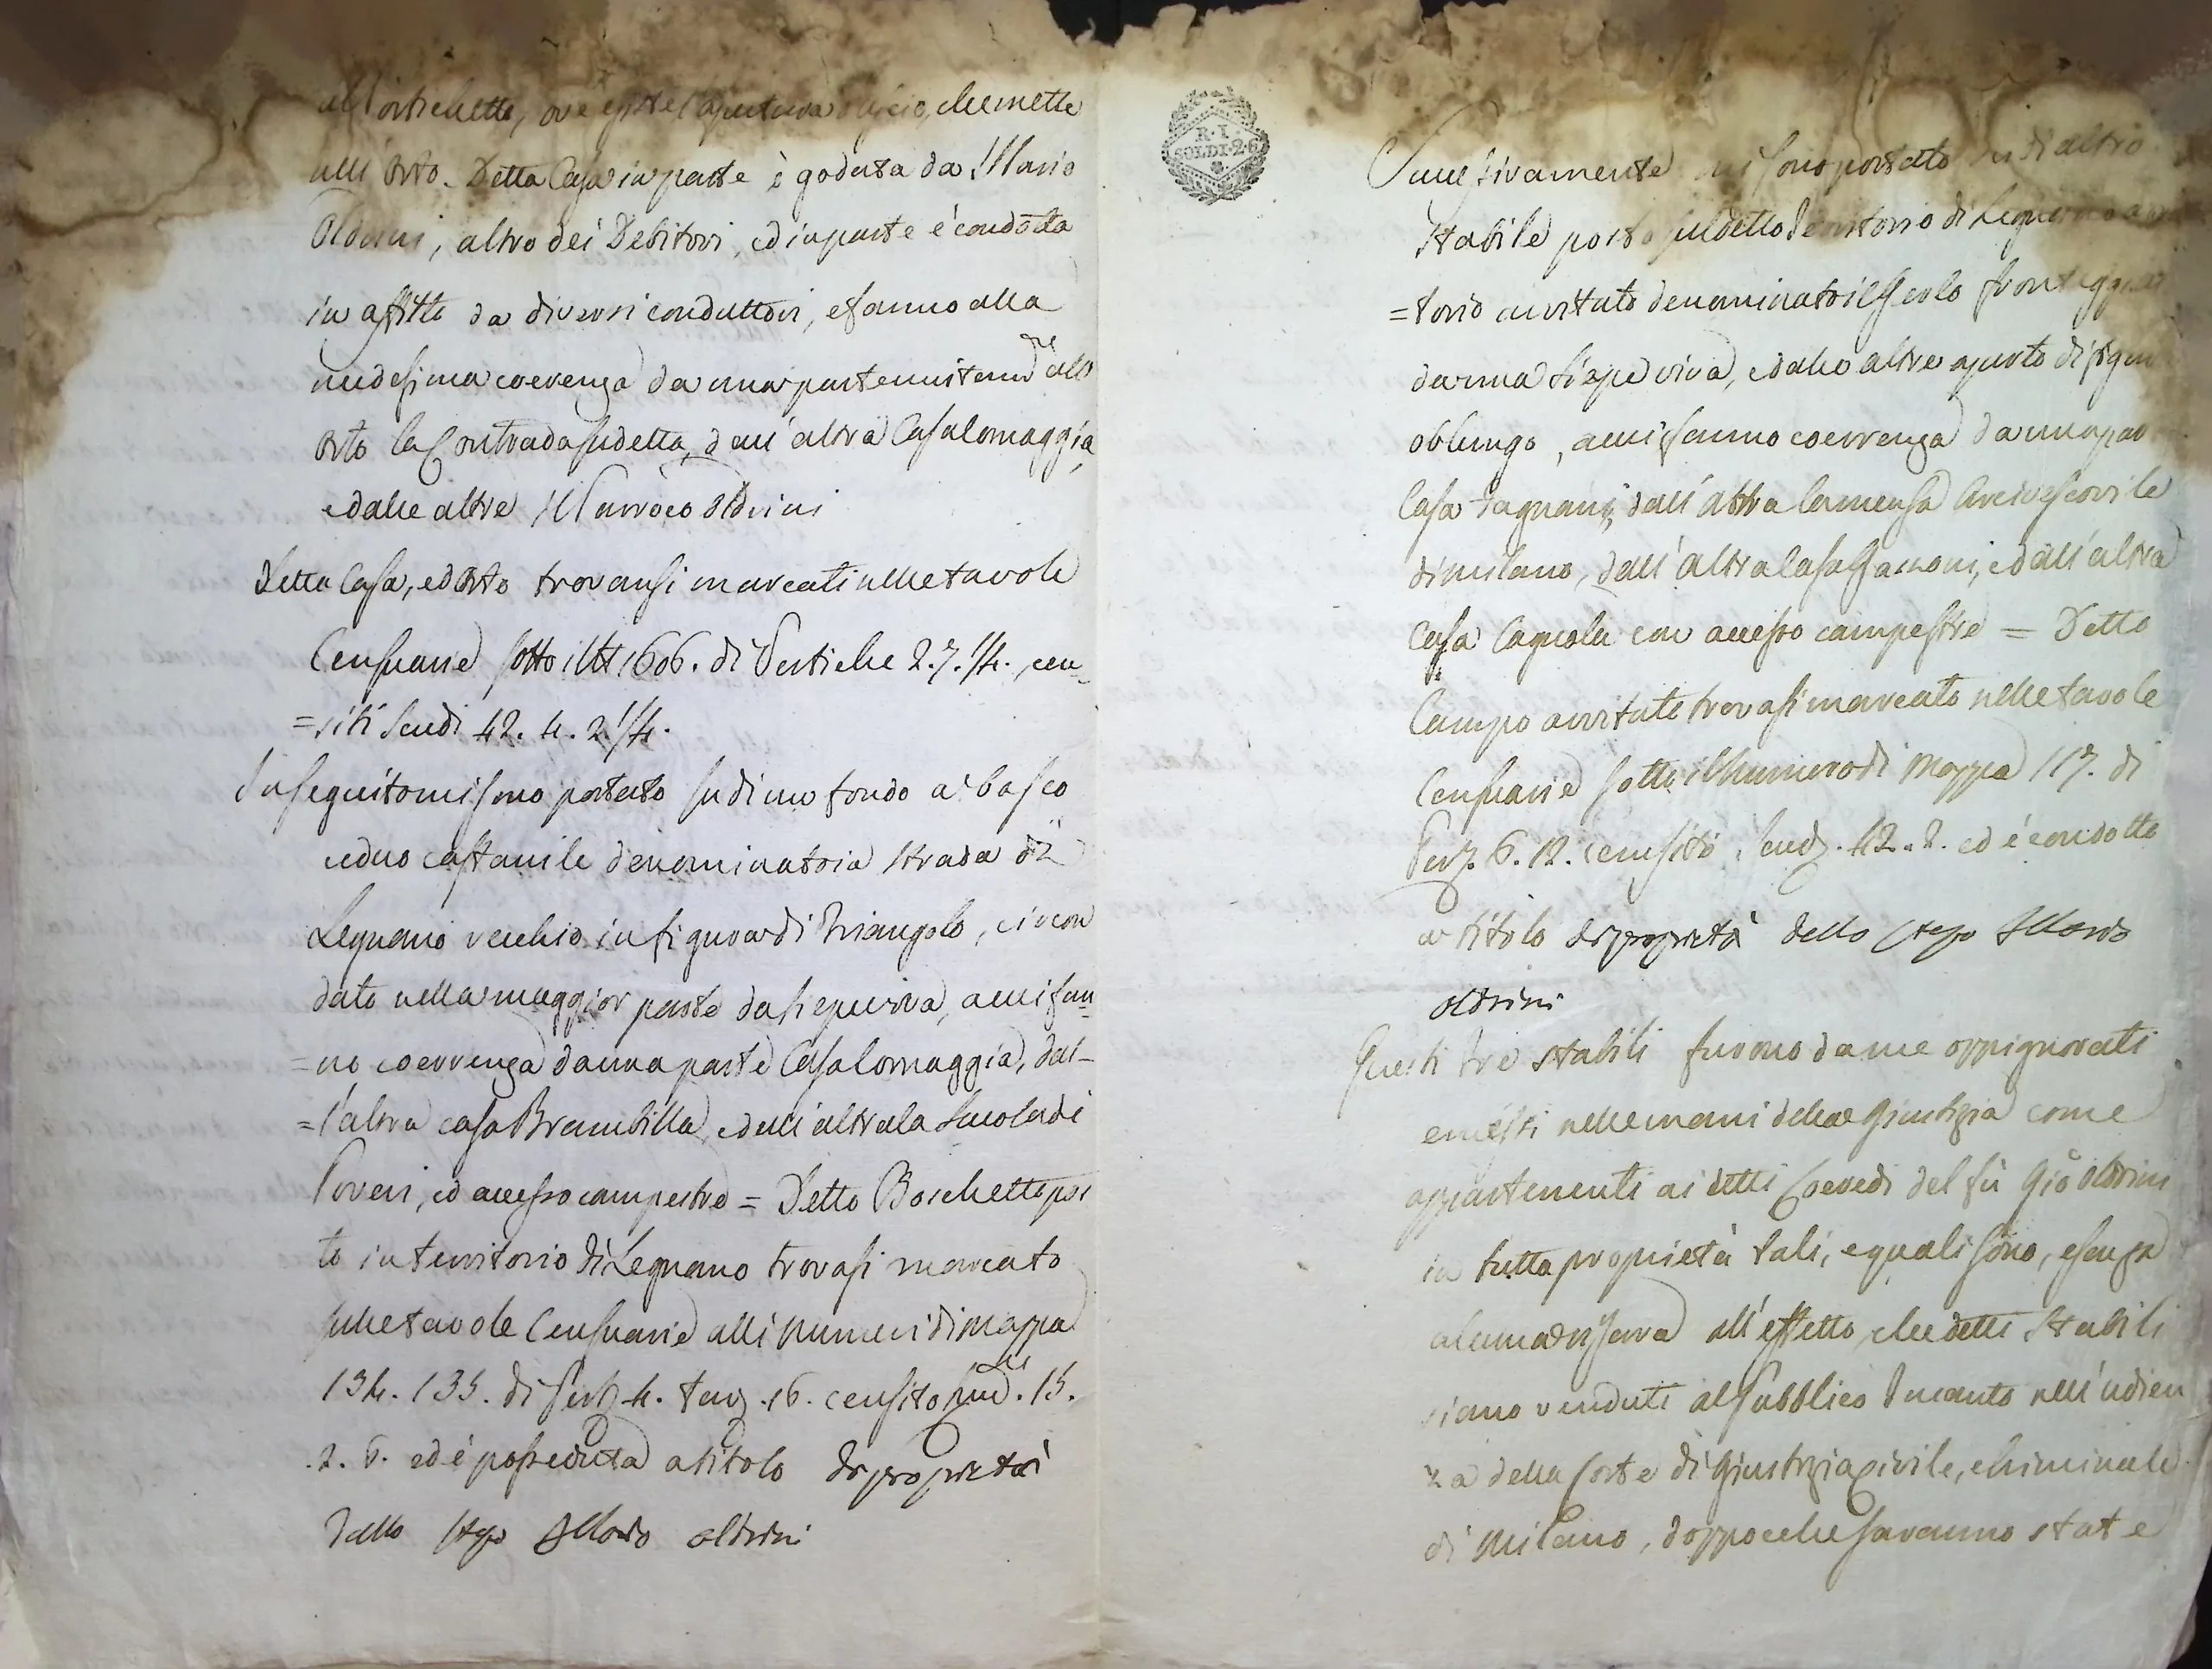 al Portichetto, ove esiste l'apertura d'uscio, che mette
nell'Orto. Detta Casa in parte è goduta da Mario
Oldrini, altro dei Debitori, ed in parte è condotta
in affitto da diversi conduttori, e fanno alla
medesima coerenza da una parte unitam.te all'
Orto la Contrada sudetta, dall'altra Casa Lomaggia,
e dalle altre il Parroco Oldrini
Detta Casa, ed Orto trovansi marcati nelle tavole
Censuarie sotto il N 1606. di Pertiche 2. 7. 1/4., cen-
=siti Scudi 42. 4. 2 1/4.
In seguito mi sono portato su di un fondo a bosco
ceduo castanile denominato via strada di
Legnano vecchio in figura di triangolo, circon
dato nella maggior parte da siepe viva, a cui fan-
=no coerrenza da una parte Casa Lomaggia, dal-
=l'altra casa Brambilla, e dall'altra la Scuola di
Poveri, ed accesso campestre = Detto Boschetto pos
to in territorio di Legnano trovasi marcato
sulle tavole Censuarie alli Numeri di Mappa
134. 135. di Per. 4. tav. 16. censito Scudi 15.
2. 6. ed è posseduta a titolo di proprietà
dallo stesso Mario Oldrini
R. I.
SOLDI·26
Successivamente mi sono portato su di altro
Stabile posto sul detto Territorio di Legnano a
=torio avvitato denominato il Gerlo fronteggiato
da una siepe viva, e dalle altre aperto di figura
oblungo, a cui fanno coerrenza da una par
Casa Tagnani, dall'altra la mensa Arcivescovile
di Milano, dall'altra Casa Gasconi, e dall'altra
Casa Cagnola con accesso campestre = Detto
Campo avvitato trovasi marcato nelle tavole
Censuarie sotto il Numero di Mappa 117. di
Per. 6. 12. censito Scud. 42. 2. ed è condotto
a titolo di proprietà dello stesso Mario
Oldrini
Questi tre stabili furono da me oppignorati
e messi nelle mani della Giustizia come
appartenenti ai detti Coeredi del fù Gio Oldrini
in tutta proprietà tali, e quali sono, e senza
alcuna riserva all'effetto, che detti Stabili
siano venduti al Pubblico Incanto nell'udien
za della Corte di Giustizia civile, e criminale
di Milano, doppocche saranno state